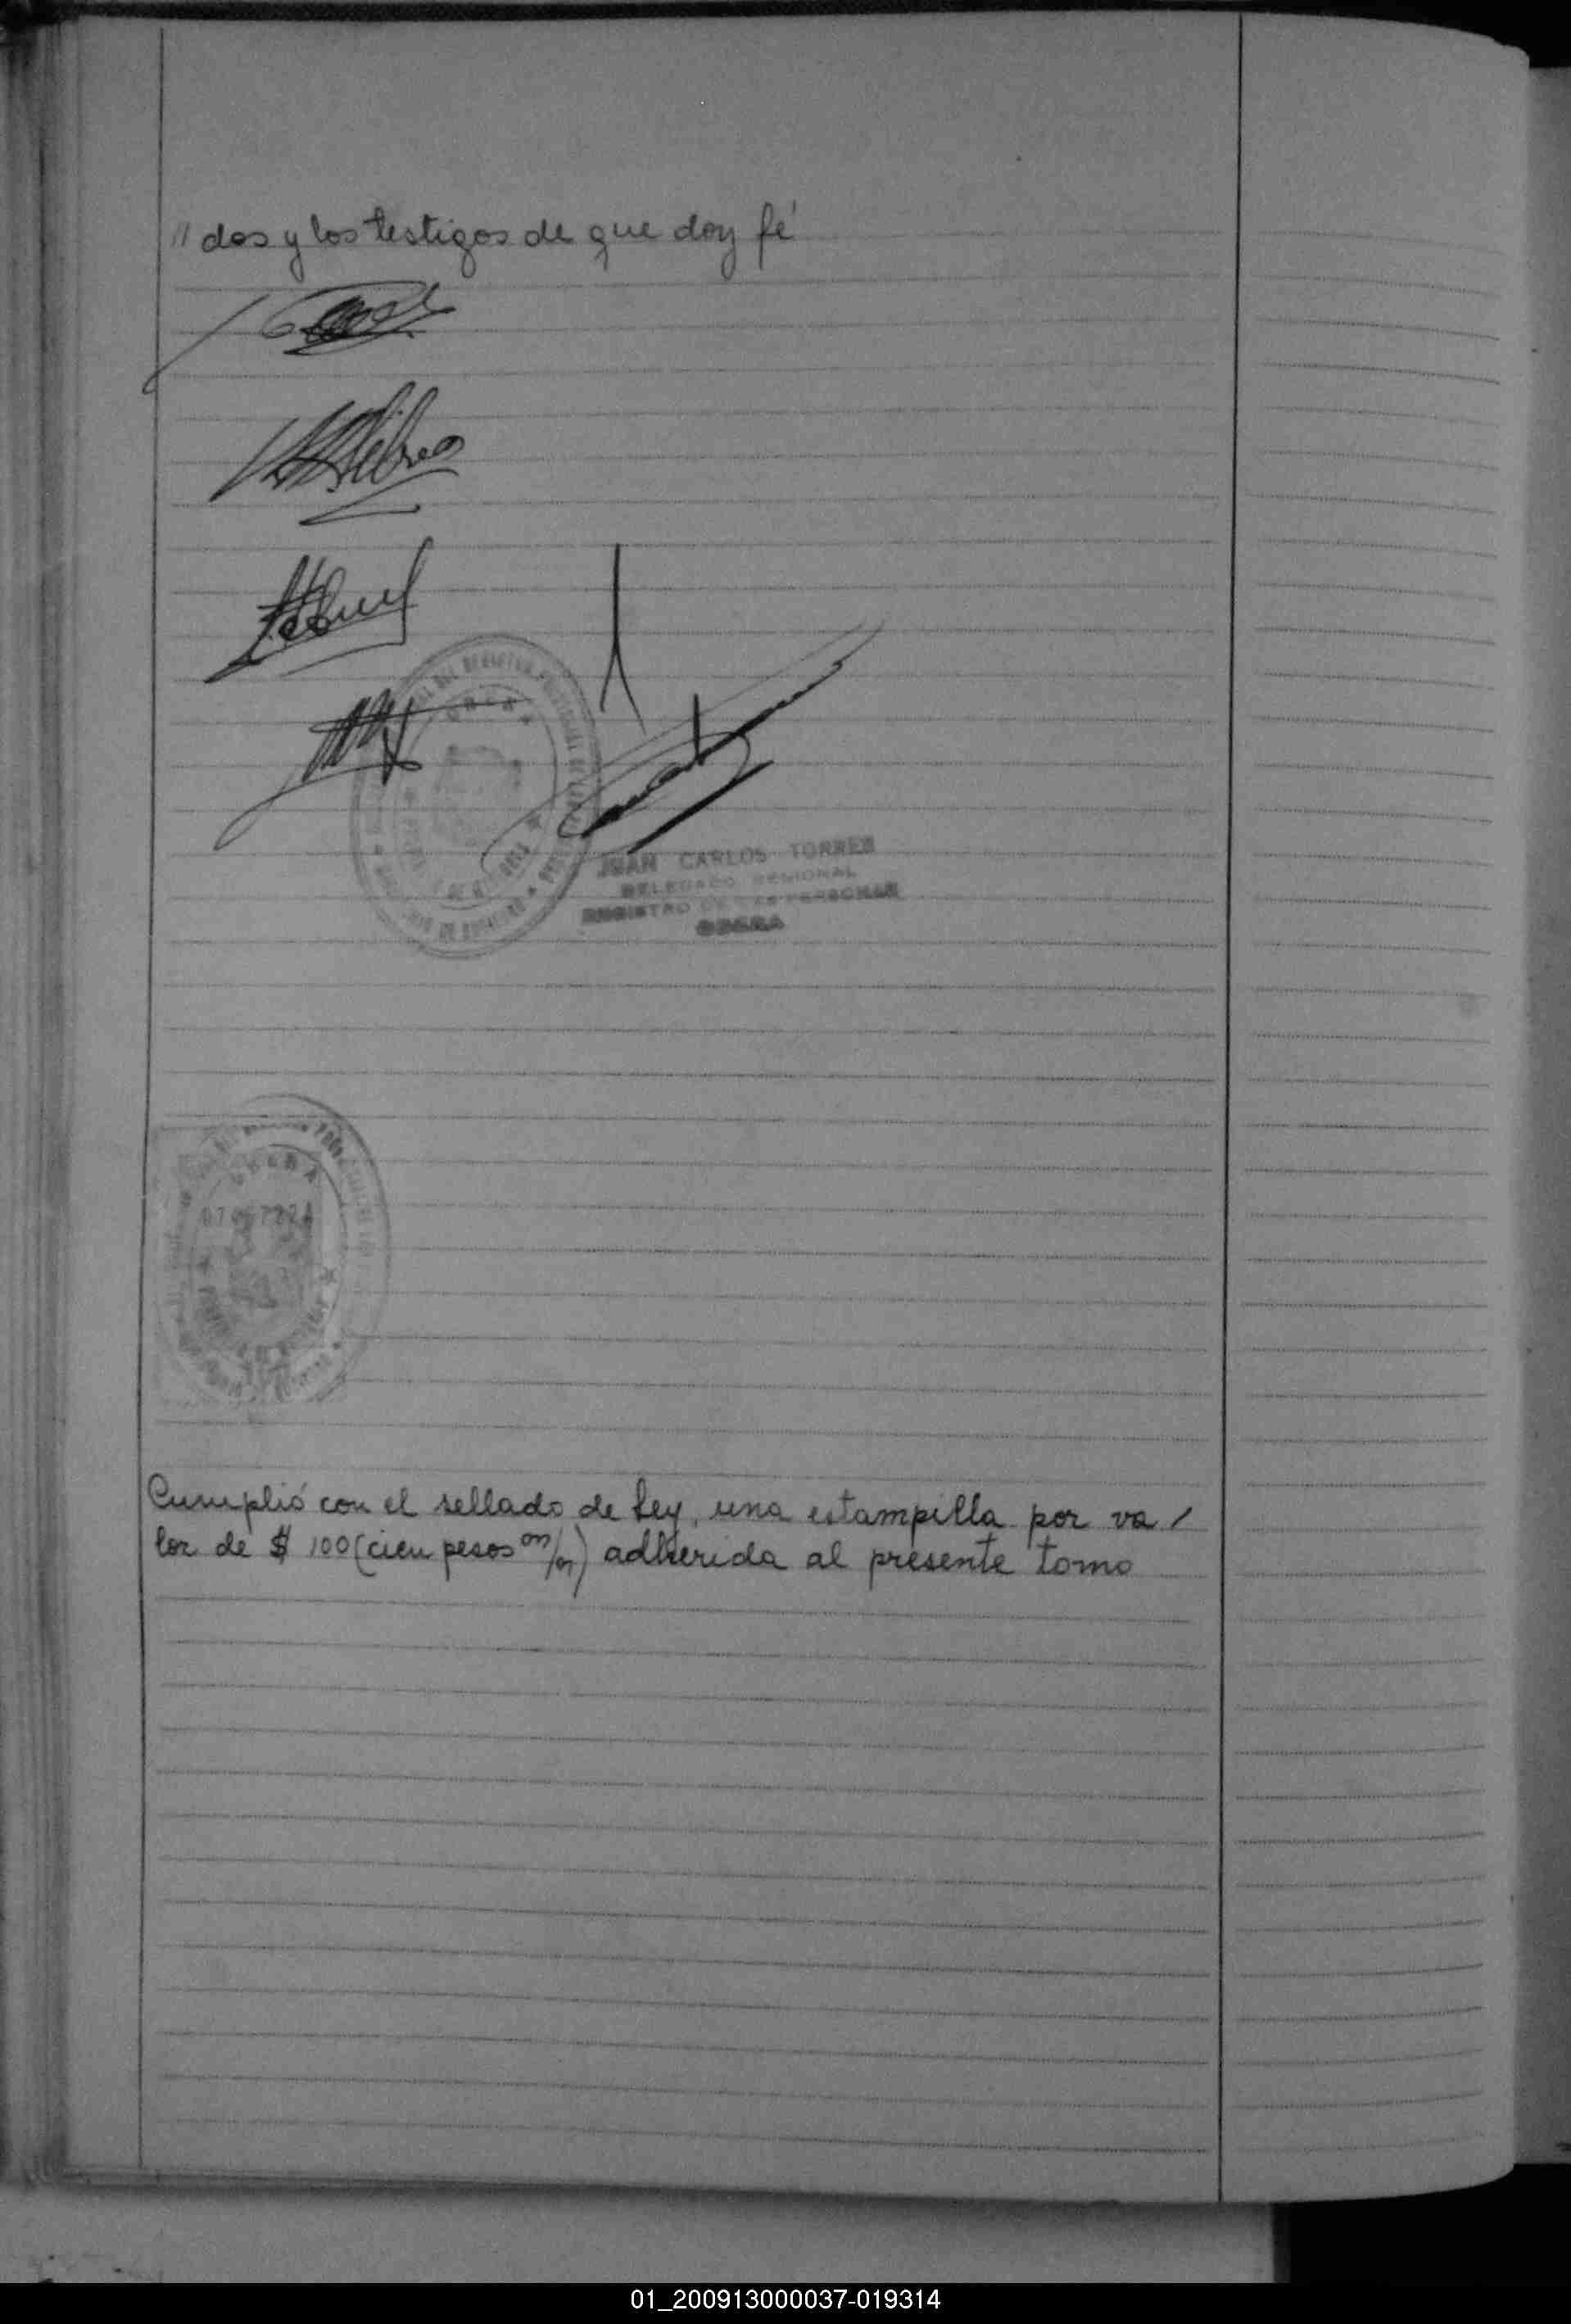 // dos y los testigos de que doy fé
JUAN CARLOS TORRES
DELEGADO REGIONAL
REGISTRO DE LAS PERSONAS
OBERA
OBERA
Cumplió con el sellado de Ley, una estampilla por va /
lor de $ 100 (cien pesos m/n) adherida al presente tomo
01_200913000037-019314